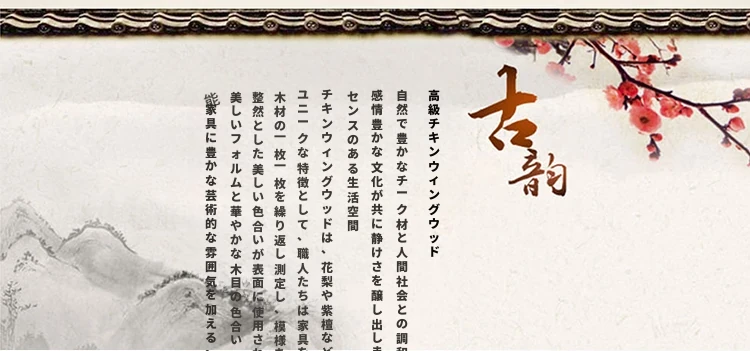 古韵
高級チキンウイングウッド
自然で豊かなチーク材と人間社会との調和
感情豊かな文化が共に静けさを醸し出しま
センスのある生活空間
チキンウィングウッドは、花梨や紫檀など
ユニークな特徴として、職人たちは家具を
木材の一枚一枚を繰り返し測定し、模様を
整然とした美しい色合いが表面に使用され
美しいフォルムと華やかな木目の色合い
家具に豊かな芸術的な雰囲気を加える、